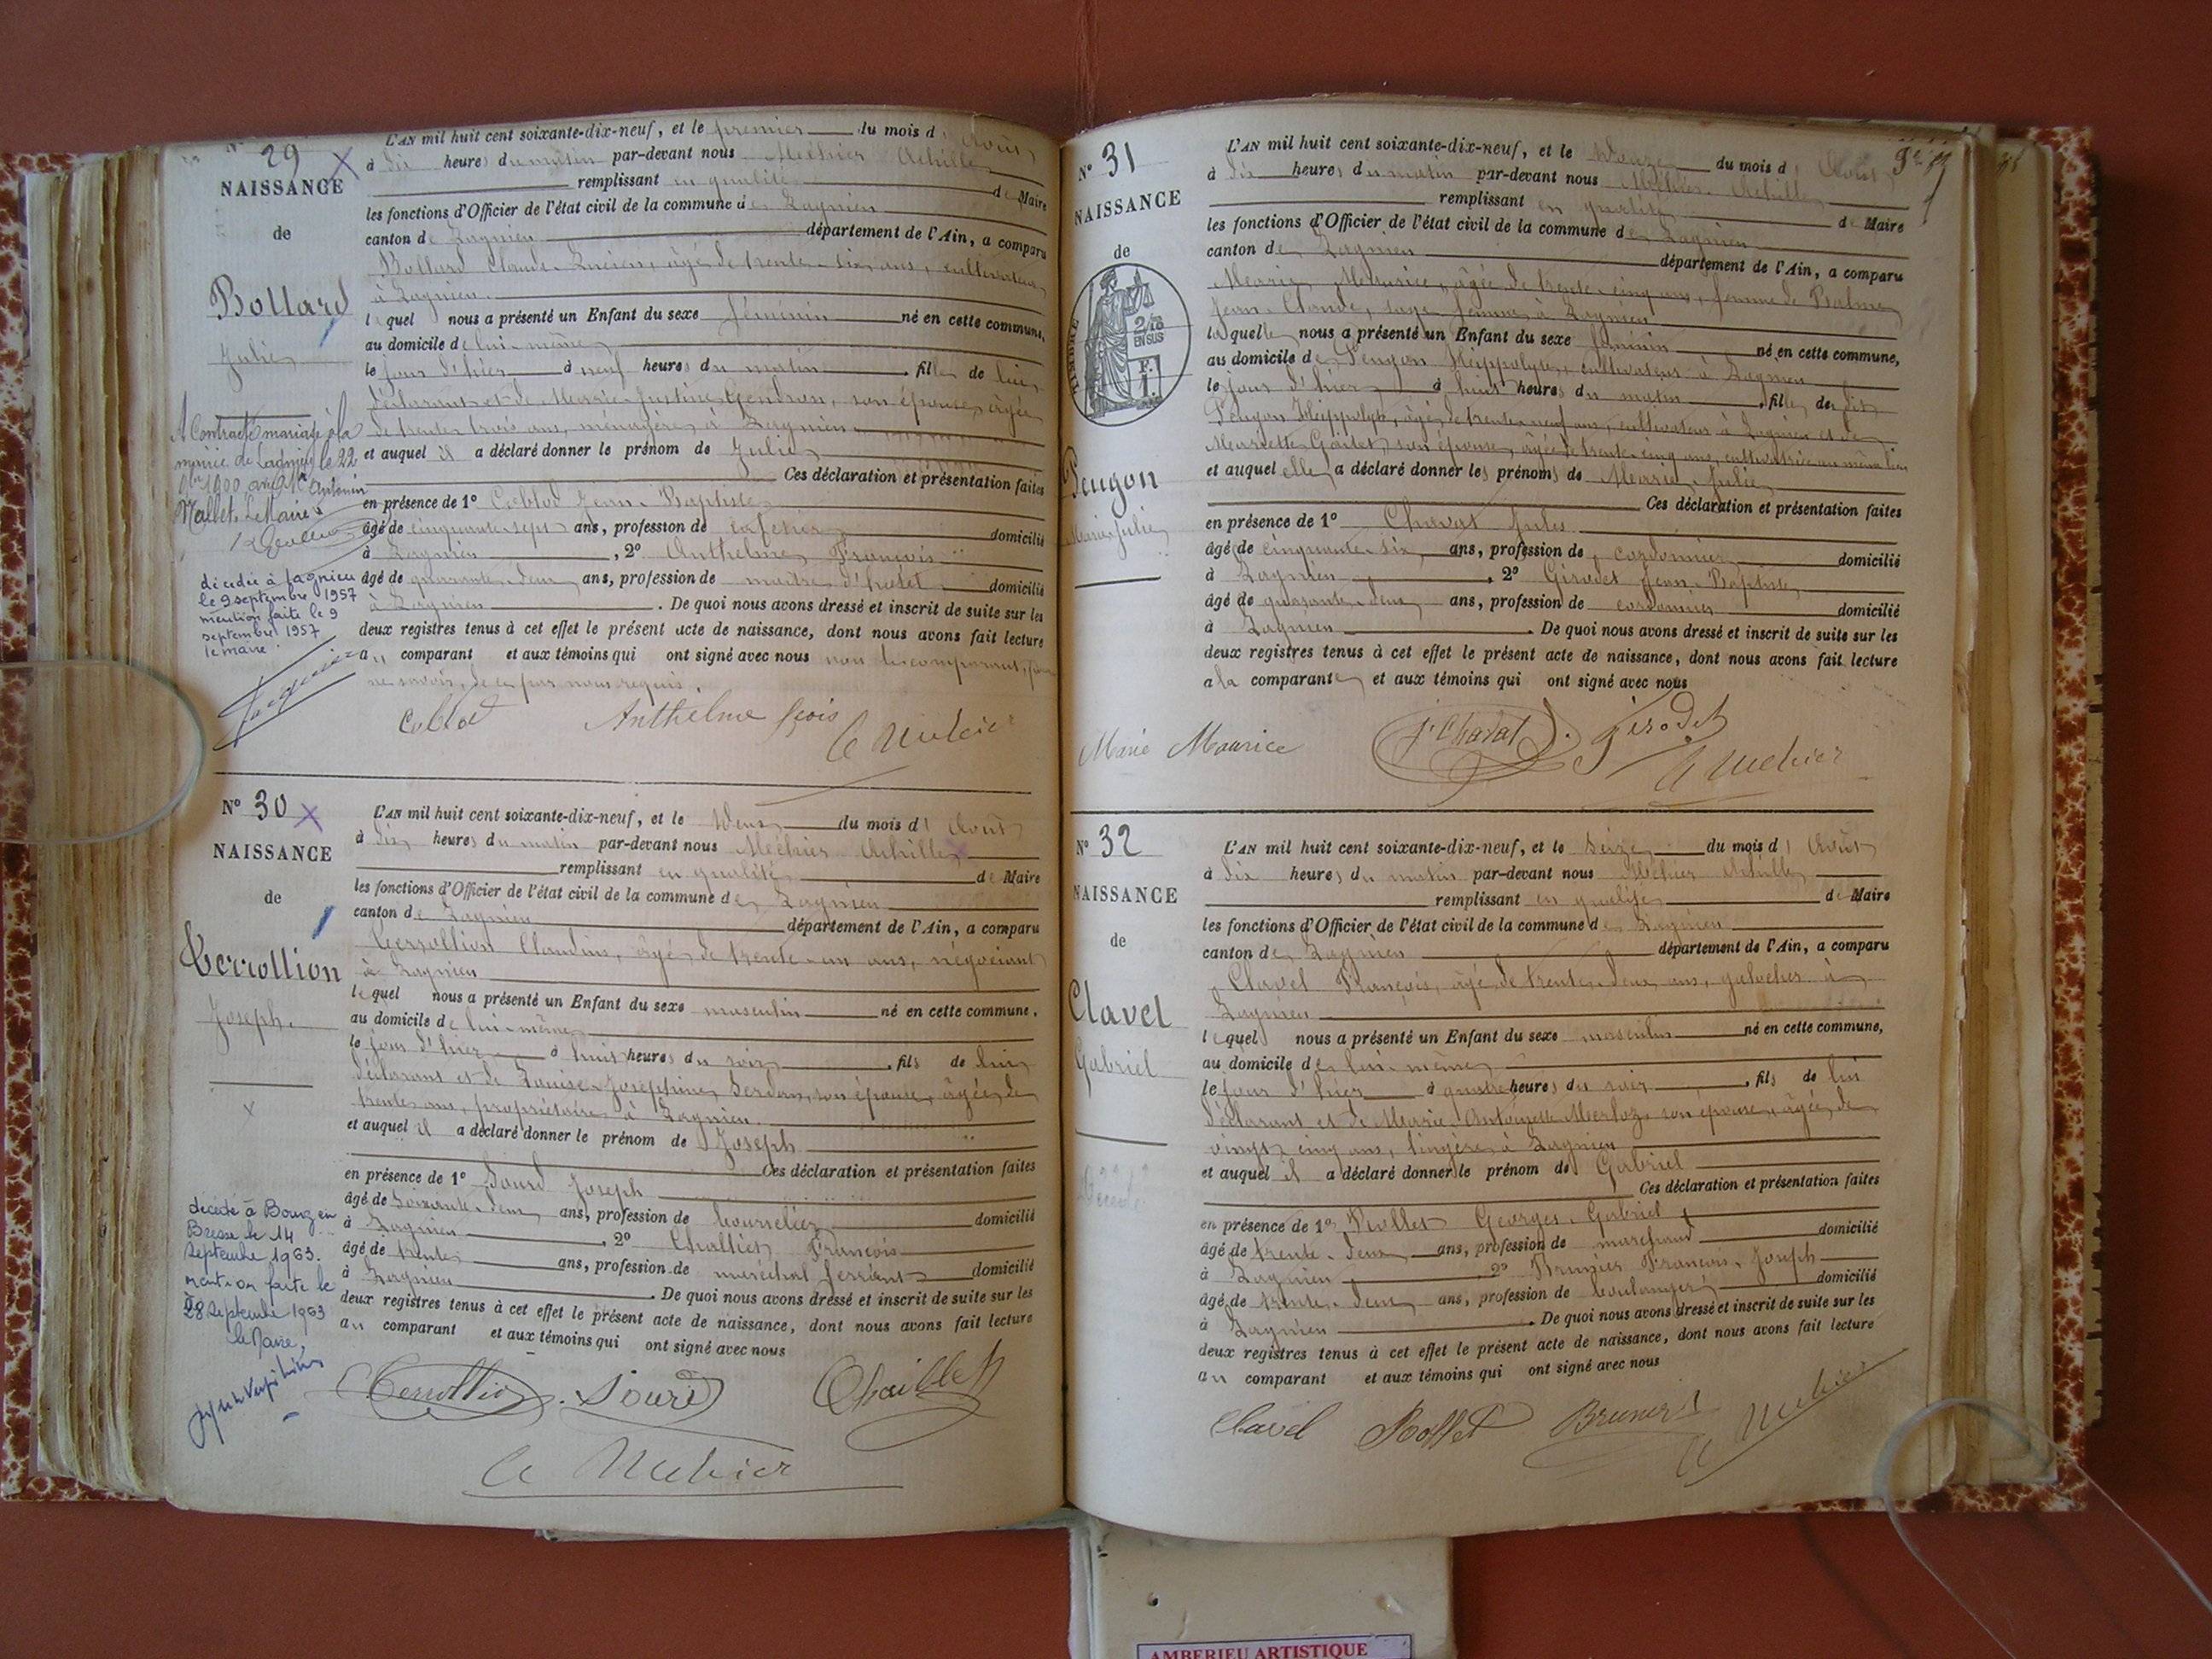 N° 29
NAISSANCE
de
Bollard
Julie
A Contracté mariage à la
mairie de Lagnieu le 22
1900 avec Mr Antonin
Mallet. Le Maire
décédée à Lagnieu
le 9 septembre 1957
mention faite le 9
septembre 1957
le maire
L'AN mil huit cent soixante-dix-neuf, et le premier du mois d'Août
à dix heures du matin par-devant nous Méchier Achille
remplissant en qualité de Maire
les fonctions d'Officier de l'état civil de la commune de Lagnieu
canton de Lagnieu département de l'Ain, a comparu
Bollard Claude-Lucien, âgé de trente-six ans, cultivateur
à Lagnieu
lequel nous a présenté un Enfant du sexe féminin né en cette commune,
au domicile de lui-même
le jour d'hier à neuf heures du matin, fille de lui
déclarant et de Marie-Justine Gendron, son épouse, âgée
de trente-trois ans, ménagère à Lagnieu
et auquel il a déclaré donner le prénom de Julie
Ces déclaration et présentation faites
en présence de 1° Coblod Jean-Baptiste
âgé de cinquante-sept ans, profession de cafetier domicilié
à Lagnieu, 2° Anthelme François
âgé de quarante-deux ans, profession de maître d'hôtel domicilié
à Lagnieu. De quoi nous avons dressé et inscrit de suite sur les
deux registres tenus à cet effet le présent acte de naissance, dont nous avons fait lecture
au comparant et aux témoins qui ont signé avec nous non le comparant, pour
ne savoir, de ce par nous requis.
Coblod Anthelme fçois
A Méchier
N° 30
NAISSANCE
de
Cerrollion
Joseph.
décédé à Bourg en
Bresse le 14
septembre 1963.
mention faite le
28 septembre 1963
le Maire,
L'AN mil huit cent soixante-dix-neuf, et le deux du mois d'Août
à dix heures du matin par-devant nous Méchier Achille
remplissant en qualité de Maire
les fonctions d'Officier de l'état civil de la commune de Lagnieu
canton de Lagnieu département de l'Ain, a comparu
Cerrollion Claudius, âgé de trente-un ans, négociant
à Lagnieu
lequel nous a présenté un Enfant du sexe masculin né en cette commune,
au domicile de lui-même
le jour d'hier à huit heures du soir, fils de lui
déclarant et de Louise-Joséphine, son épouse, âgée de
trente ans, propriétaire à Lagnieu
et auquel il a déclaré donner le prénom de Joseph
Ces déclaration et présentation faites
en présence de 1° Sourd Joseph
âgé de soixante-deux ans, profession de bourrelier domicilié
à Lagnieu, 2° François
âgé de trente ans, profession de maréchal ferrant domicilié
à Lagnieu. De quoi nous avons dressé et inscrit de suite sur les
deux registres tenus à cet effet le présent acte de naissance, dont nous avons fait lecture
au comparant et aux témoins qui ont signé avec nous
Cerrollion Sourd Chaillet
A Méchier
N° 31
NAISSANCE
de
TIMBRE
2/10
EN SUS
F. 1
Peugon
Marie Julie
L'AN mil huit cent soixante-dix-neuf, et le douze du mois d'Août
à dix heures du matin par-devant nous Méchier Achille
remplissant en qualité de Maire
les fonctions d'Officier de l'état civil de la commune de Lagnieu
canton de Lagnieu département de l'Ain, a comparu
Marie Maurice, âgée de trente-cinq ans, femme de
Jean-Claude, sage femme à Lagnieu
laquelle nous a présenté un Enfant du sexe féminin né en cette commune,
au domicile de Peugon Hippolyte, cultivateur à Lagnieu
le jour d'hier à huit heures du matin, fille de dit
Peugon Hippolyte, âgé de trente-neuf ans, cultivateur à Lagnieu et de
Mariette, son épouse, âgée de trente-cinq ans, cultivatrice au même lieu
et auquel elle a déclaré donner les prénoms de Marie-Julie
Ces déclaration et présentation faites
en présence de 1° Chavat Jules
âgé de cinquante-six ans, profession de cordonnier domicilié
à Lagnieu, 2° Girodet Jean-Baptiste
âgé de quarante-deux ans, profession de cordonnier domicilié
à Lagnieu. De quoi nous avons dressé et inscrit de suite sur les
deux registres tenus à cet effet le présent acte de naissance, dont nous avons fait lecture
à la comparante et aux témoins qui ont signé avec nous
Marie Maurice J. Chavat Girodet
A Méchier
N° 32
NAISSANCE
de
Clavel
Gabriel
L'AN mil huit cent soixante-dix-neuf, et le seize du mois d'Août
à dix heures du matin par-devant nous Méchier Achille
remplissant en qualité de Maire
les fonctions d'Officier de l'état civil de la commune de Lagnieu
canton de Lagnieu département de l'Ain, a comparu
Clavel François, âgé de trente-deux ans, galocher à
Lagnieu
lequel nous a présenté un Enfant du sexe masculin né en cette commune,
au domicile de lui-même
le jour d'hier à quatre heures du soir, fils de lui
déclarant et de Marie-Antoinette Merloz, son épouse, âgée de
vingt-cinq ans, lingère à Lagnieu
et auquel il a déclaré donner le prénom de Gabriel
Ces déclaration et présentation faites
en présence de 1° Georges-Gabriel
âgé de trente-deux ans, profession de marchand domicilié
à Lagnieu, 2° Brunier François-Joseph
âgé de trente-deux ans, profession de boulanger domicilié
à Lagnieu. De quoi nous avons dressé et inscrit de suite sur les
deux registres tenus à cet effet le présent acte de naissance, dont nous avons fait lecture
au comparant et aux témoins qui ont signé avec nous
Clavel Brunier
A Méchier
AMBERIEU ARTISTIQUE